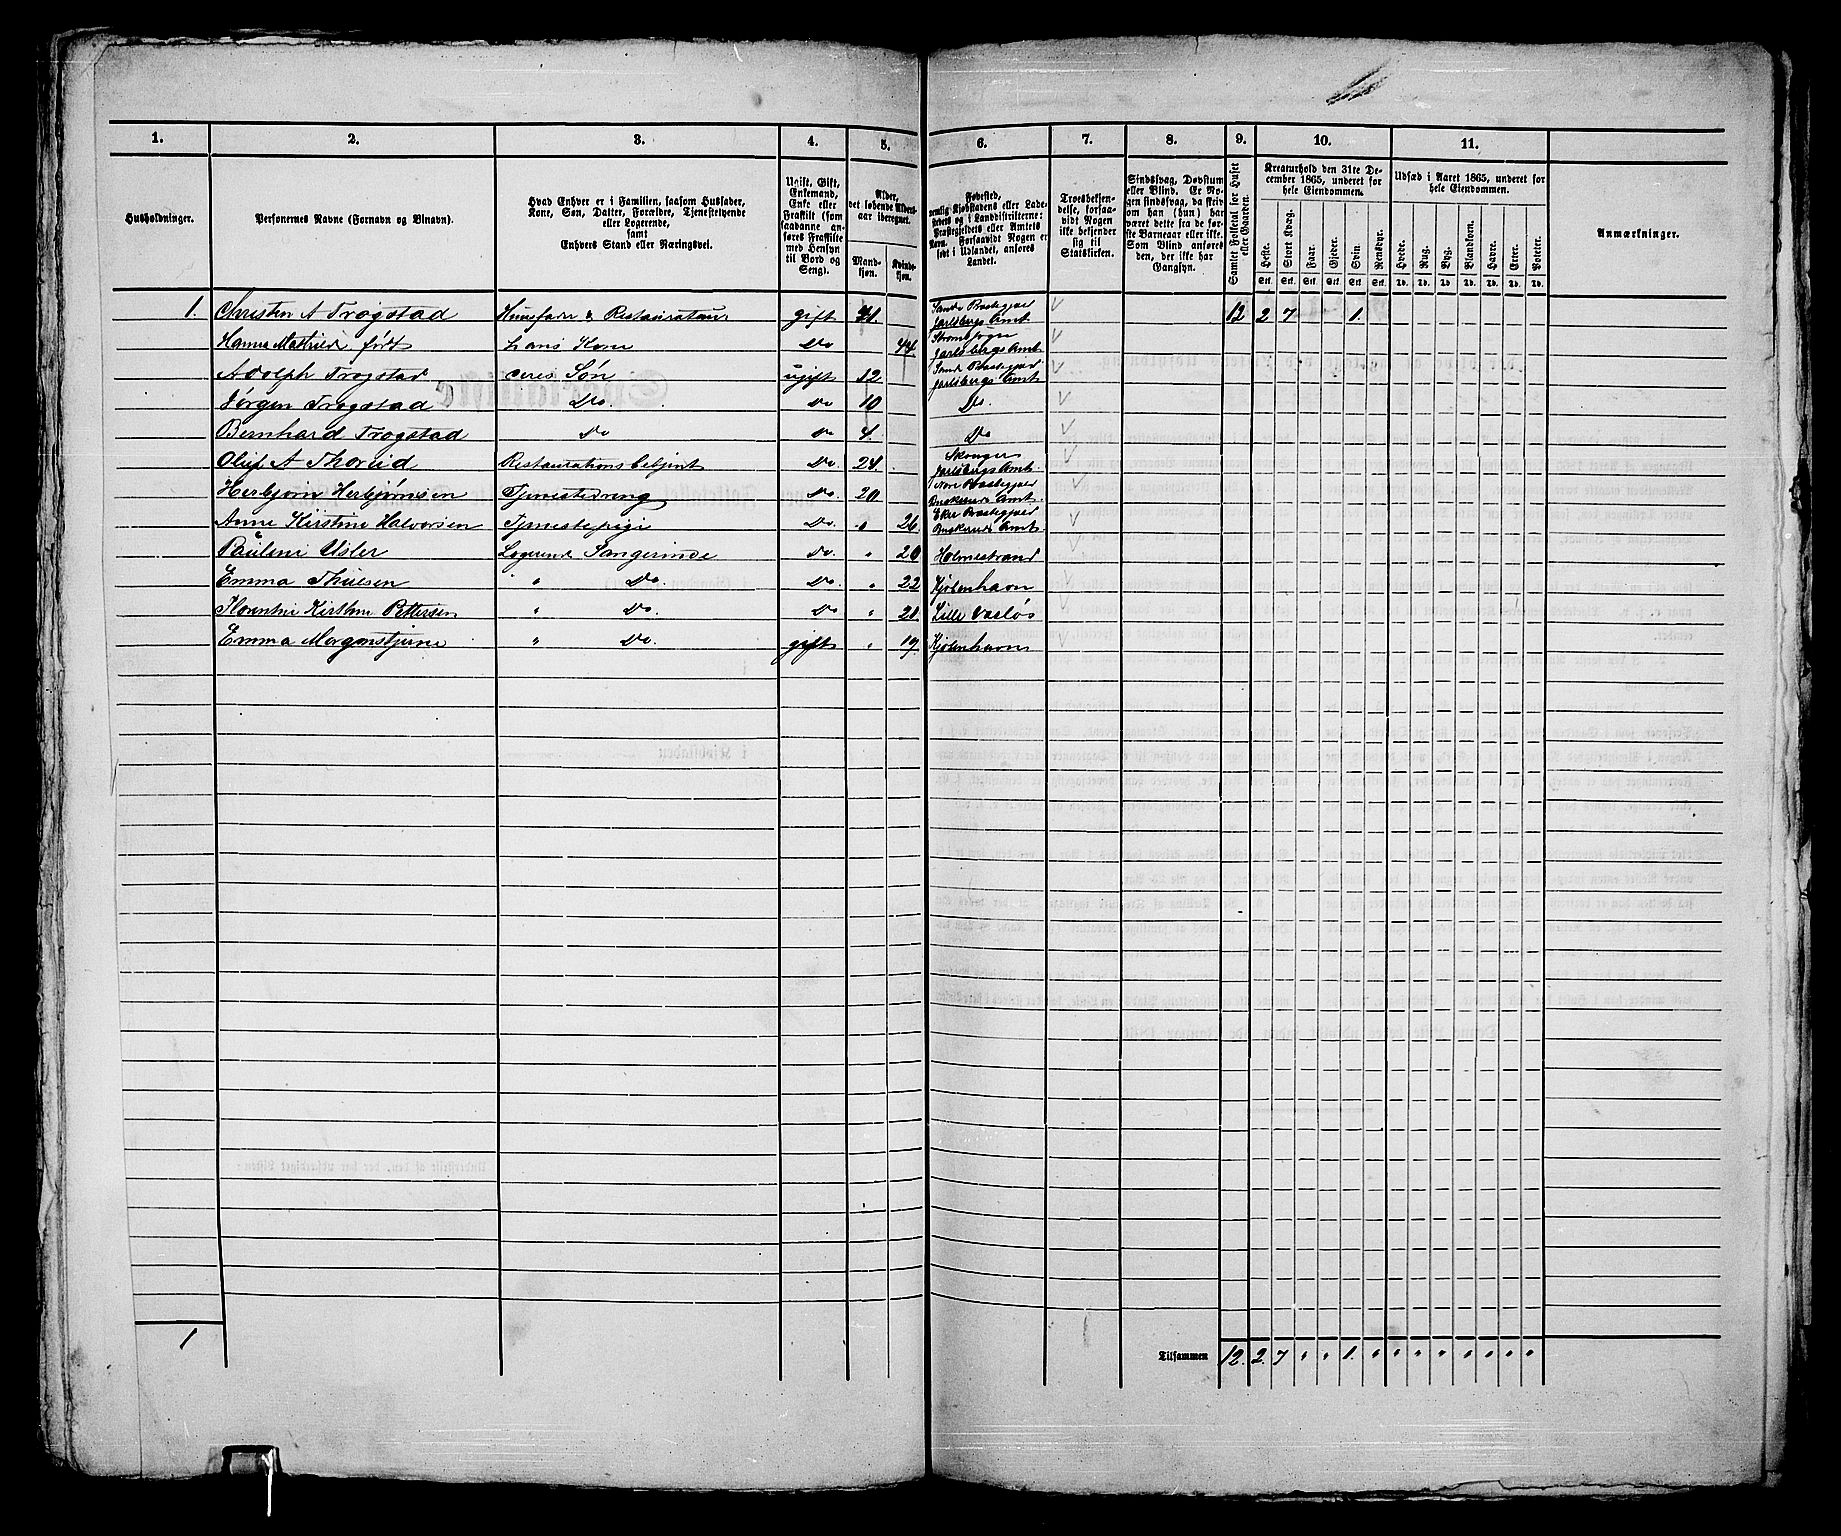 1. 2. 3. 4. 5. 6. 7. 8. 9. 10. 11.
Husholdninger.
Personernes Navne (Fornavn og Tilnavn).
Hvad Enhver er i Familien, saasom Husfader,
Kone, Søn, Datter, Forældre, Tjenestetyende
eller Logerende,
samt
Enhvers Stand eller Næringsvei.
Ugift, Gift,
Enkemand,
Enke eller
Fraskilt (som
saadanne an-
føres Fraskilte
med Hensyn
til Bord og
Seng).
Alder,
det løbende Alders-
aar iberegnet.
Mand-
kjøn.
Kvinde-
kjøn.
Fødested,
nemlig Kjøbstadens eller Lade-
stedets og i Landdistrikterne:
Præstegjeldets eller Amtets
Navn. Forsaavidt Nogen er
født i Udlandet, anføres
Landet.
Troesbekjen-
delse, forsaa-
vidt Nogen
ikke bekjender
sig til
Statskirken.
Sindssvag, Døvstum
eller Blind. Er No-
gen sindssvag, da skriv
om han (hun) har
været dette fra de før-
ste Barneaar eller ikke.
Som Blind anføres
den, der ikke har
Gangsyn.
Samlet Folketal for Huset
eller Gaarden.
Kreaturhold den 31te De-
cember 1865, underet for
hele Eiendommen.
Heste. Stort Kvæg. Faar. Gjeder. Svin. Rensdyr.
Stk. Stk. Stk. Stk. Stk. Stk.
Udsæd i Aaret 1865, underet for
hele Eiendommen.
Hvede. Rug. Byg. Blandkorn. Havre. Erter. Poteter.
Td. Td. Td. Td. Td. Td. Td.
Anmærkninger.
1. Christen A Trogstad Huusfader & Restauratør gift 41. Sande Præstegjeld Jarlsbergs Amt 12 2 7 1.
Hanna Mathilde født Hans Kone Do 44. Jarlsbergs Amt
Adolph Trogstad deres Søn ugift 12 Sande Præstegjeld Jarlsbergs Amt
Jørgen Trogstad Do. Do 10 Do.
Bernhard Trogstad Do Do 4. Do
Oluf A Thorud Restaurationsbetjent Do. 24. Skouger Jarlsbergs Amt.
Herbjørn Herbjørnsen Tjenestedreng Do. 20 Nore Præstegjeld Buskeruds Amt.
Anne Kirstine Halvorsen Tjenestepige Do. " 26 Eker Præstegjeld Buskeruds Amt.
Pauline Usler Logerende Sangerinde Do. " 20 Holmestrand
Emma Thuesen " Do. Do. " 22 Kjøbenhavn
Florentine Kirstine Pettersen " Do. Do " 21.
Emma Morgenstjerne " Do. gift " 19. Kjøbenhavn
1
Tilsammen 12. 2. 7 " " 1. " " " " " " " "